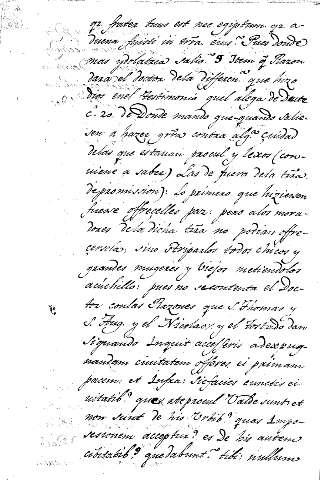 qz frater tuus est nec egiptium qz a-
duena fuisti in tr̃ra eius. Pues donde
mas ydolatras Salio. § Item q̃ Razon
dara el doctor dela differen.ª que hizo
dios enel testimonio quel alega de deute
c. 20. de Donde mando que quando salie-
sen a hazer g̃rra contra alg.ª ciudad
delas que estauan procul y lexos (con-
uiene a saber) Las de fuera dela trr̃a
de promission: lo primero que hiziessen
fuesse offrecelles paz: pero alos mora-
dores dela dicha trr̃a no podian offre-
cersela, sino todos chicos y
grandes mugeres y viejos metiendolos
acuchillo: pues no se contenta el Doc-
tor conlas Razones que S. Thomas y
S. Aug. y el Nicolao: y el tostado dan
Siquando Inquit accesseris ad expug-
nandam ciuitatem offeres ei primam
pacem. et Infra: Sic facies cunctis ci-
uitatib.ˢ que a te procul Valde sunt et
non sunt de his Vrbib.ˢ quas In pos-
sesionem accepturˢ es de his autem
ciuitatib.ˢ que dabunt.ʳ tibi nullum